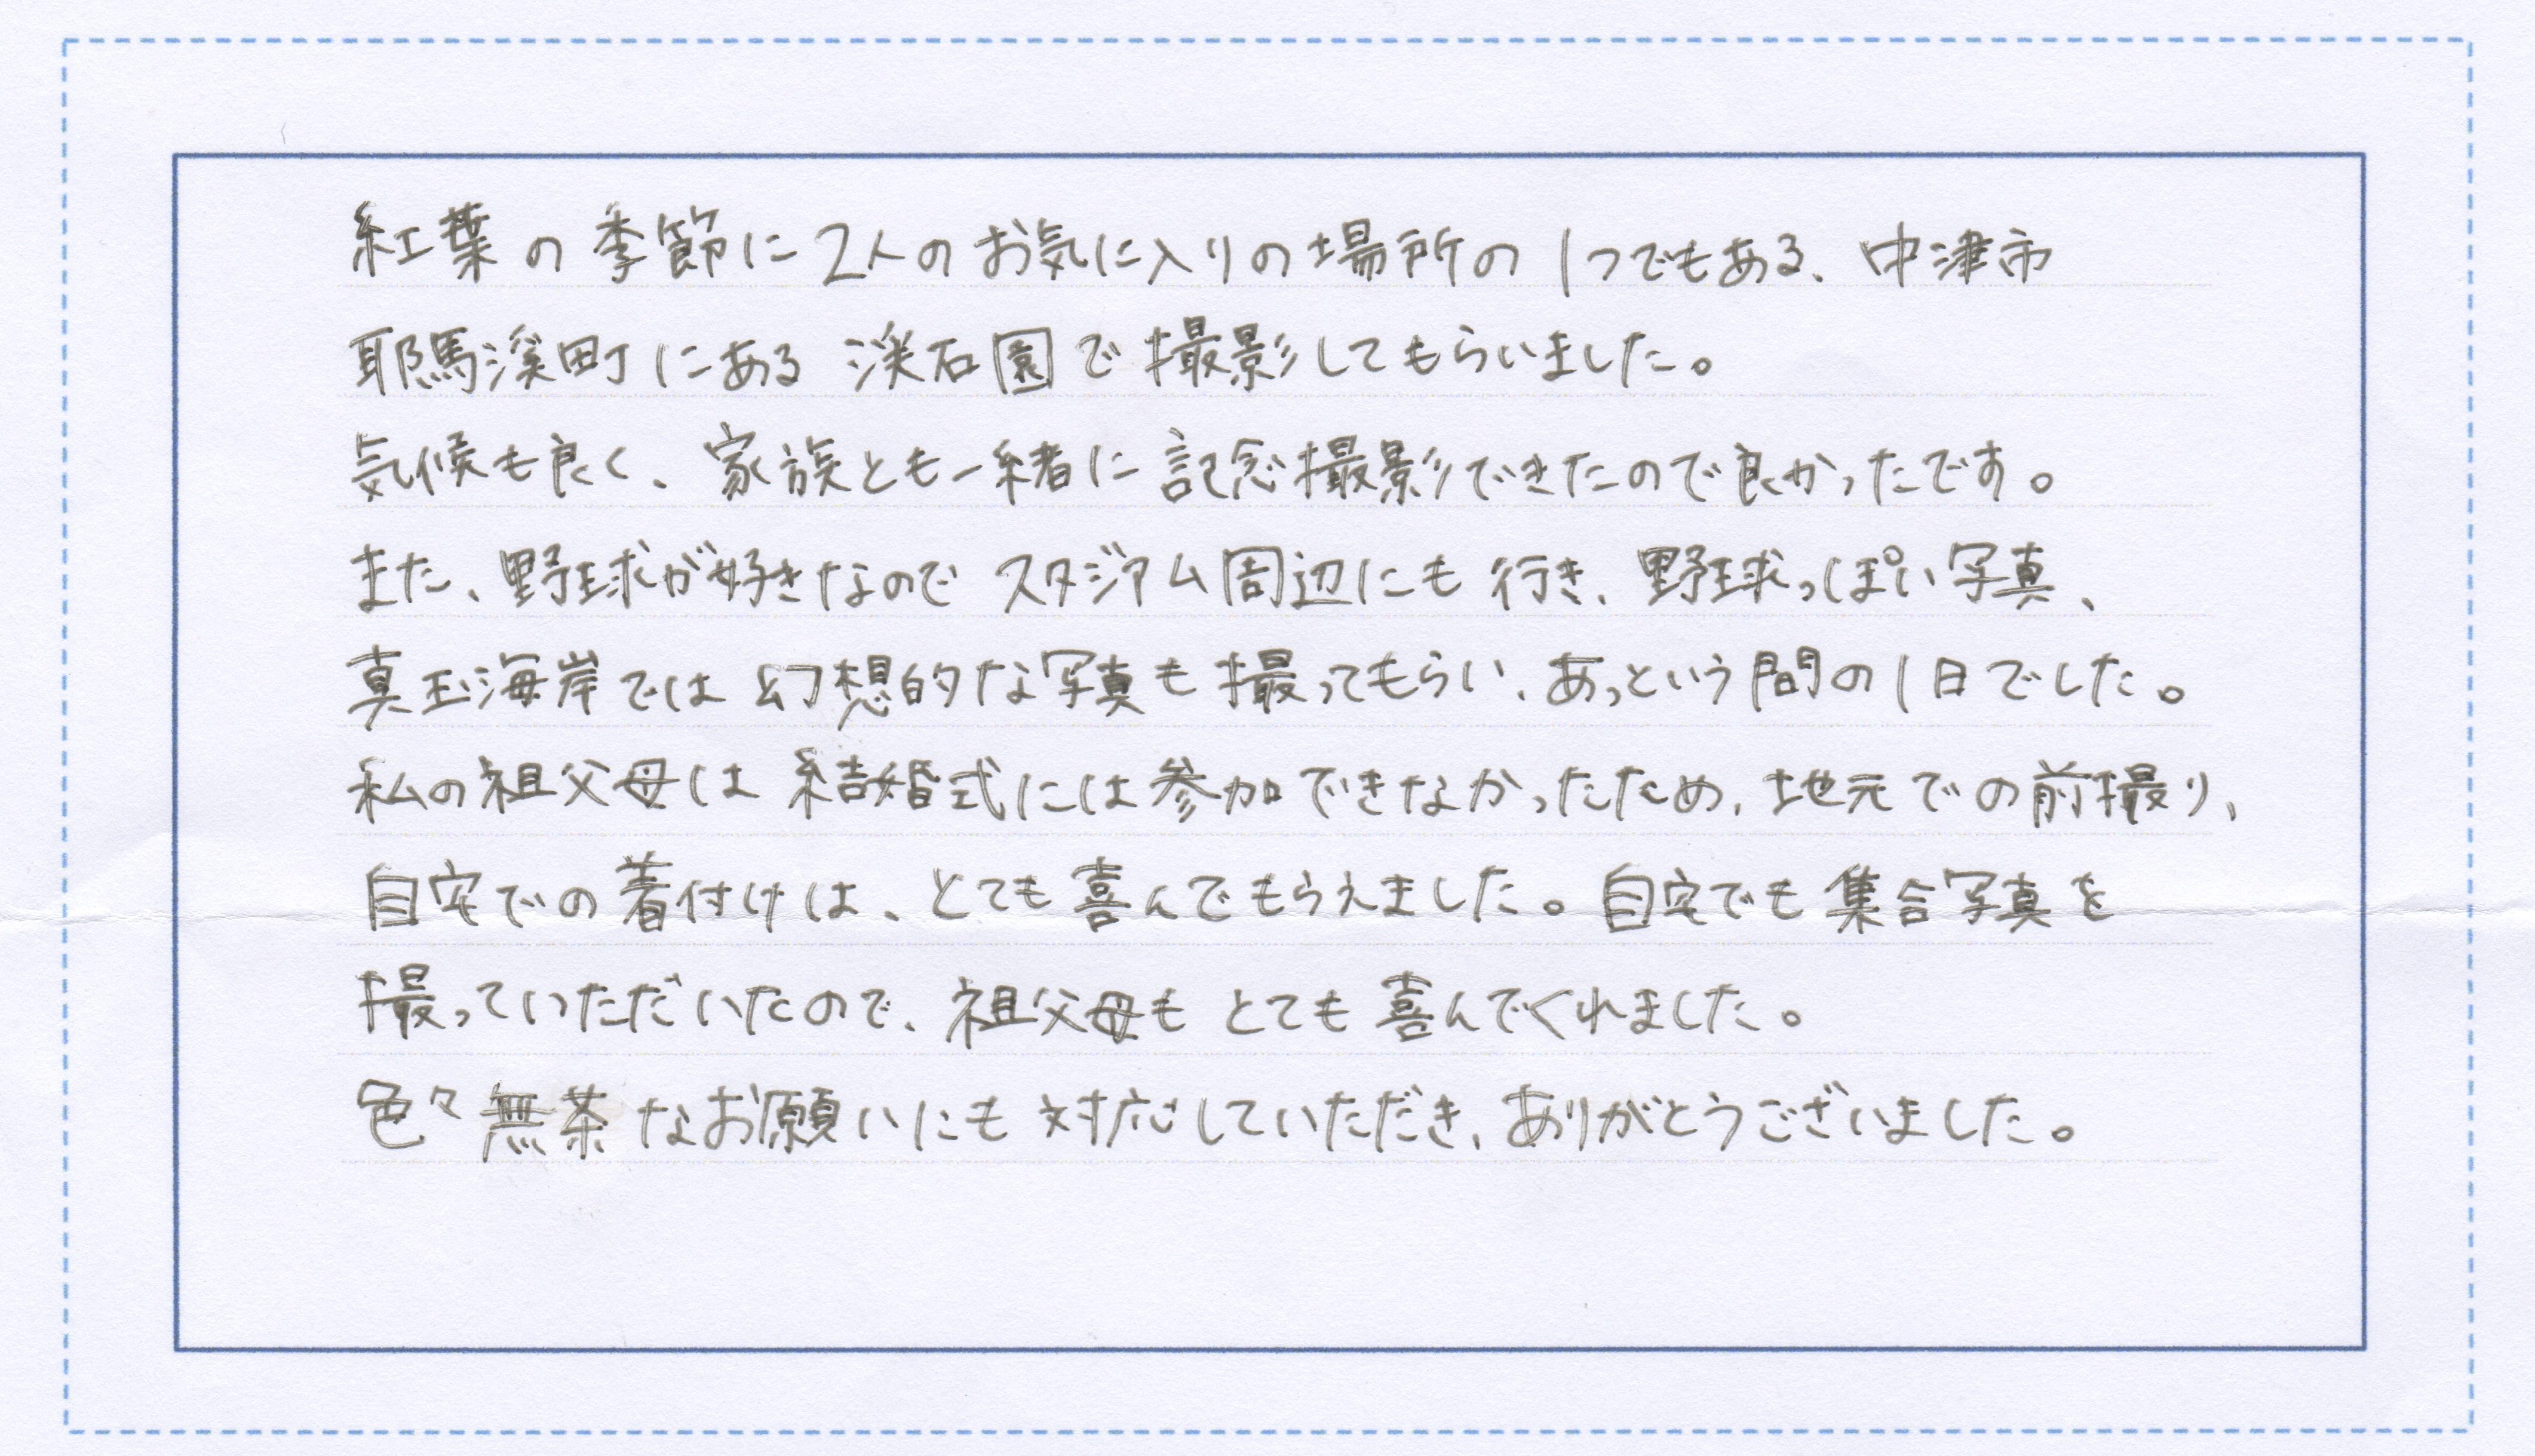 紅葉の季節に2人のお気に入りの場所の1つでもある、中津市
耶馬溪町にある渓石園で撮影してもらいました。
気候も良く、家族とも一緒に記念撮影できたので良かったです。
また、野球が好きなのでスタジアム周辺にも行き、野球っぽい写真、
真玉海岸では幻想的な写真も撮ってもらい、あっという間の1日でした。
私の祖父母は結婚式には参加できなかったため、地元での前撮り、
自宅での着付けは、とても喜んでもらえました。自宅でも集合写真を
撮っていただいたので、祖父母もとても喜んでくれました。
色々無茶なお願いにも対応していただき、ありがとうございました。